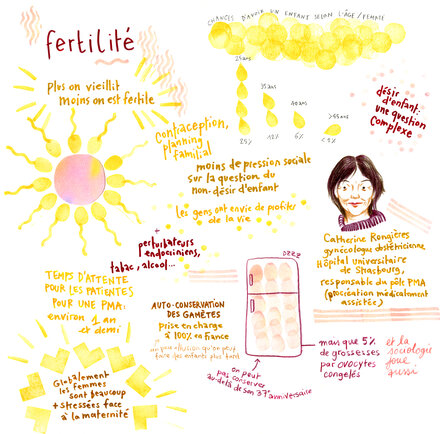 fertilité
CHANCES D'AVOIR UN ENFANT SELON L'ÂGE/FEMME
25 ans
35 ans
40 ans
>45 ans
25%
12%
6%
Plus on vieillit
moins on est fertile
désir
d'enfant:
une question
complexe
contraception,
planning
familial
moins de pression sociale
sur la question du
non-désir d'enfant
les gens ont envie de profiter
de la vie
+
perturbateurs
endocriniens,
tabac, alcool...
Catherine Rongières
gynécologue obstétricienne
Hôpital universitaire
de Strasbourg,
responsable du pôle PMA
(procréation médicalement
assistée)
TEMPS D'ATTENTE
POUR LES PATIENTES
POUR UNE PMA:
environ 1 an
et demi
AUTO-CONSERVATION
DES GAMÈTES
prise en charge
à 100% en France
faire les enfants plus tard
BZZZ
on peut
pas conserver
au-delà de son 37e anniversaire
mais que 5%
de grossesses
par ovocytes
congelés
et la
sociologie
joue
aussi
Globalement
les femmes
sont beaucoup
+ stressées face
à la maternité